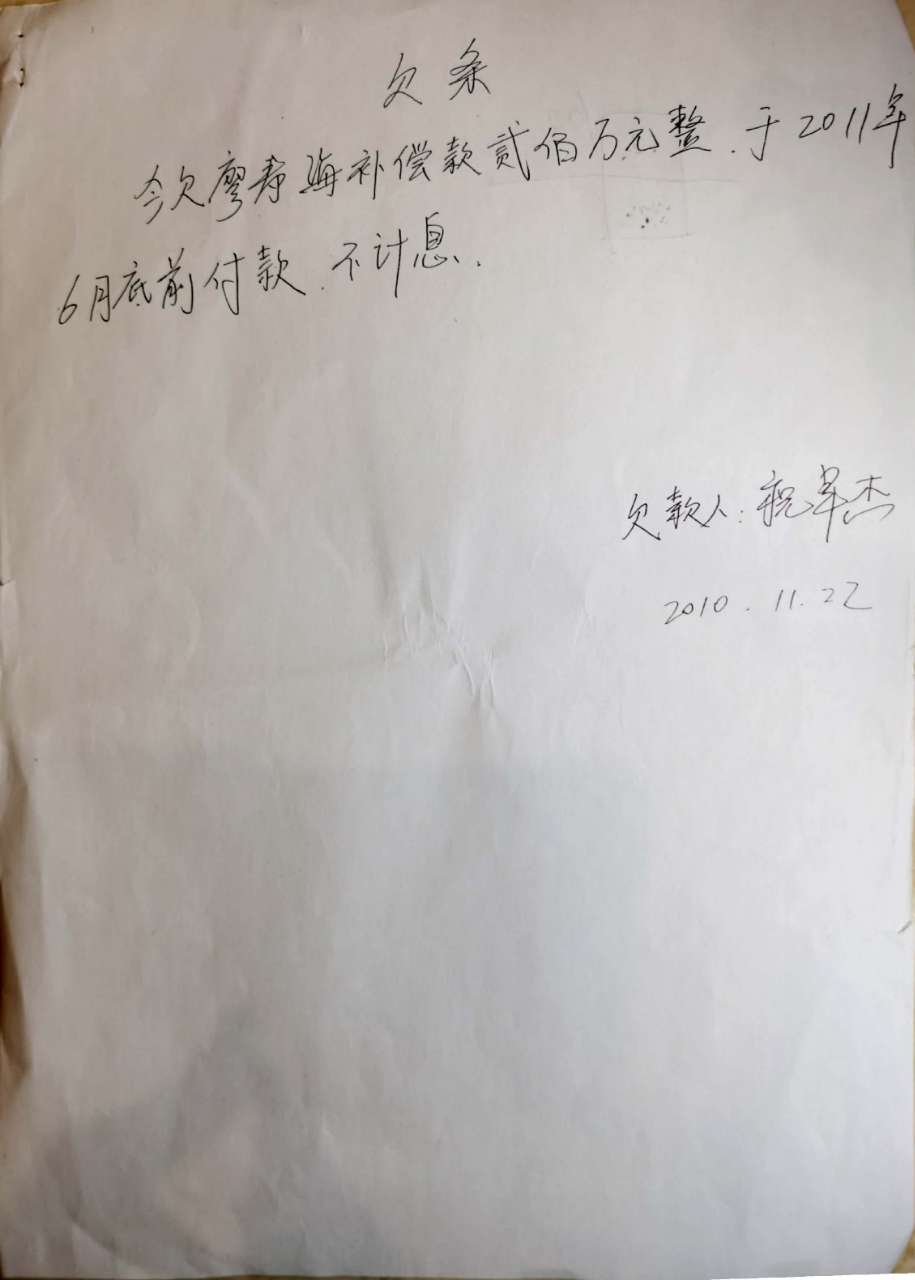 欠条
今欠廖寿海补偿款贰佰万元整.于2011年
6月底前付款.不计息.
欠款人:祝 杰
2010.11.22